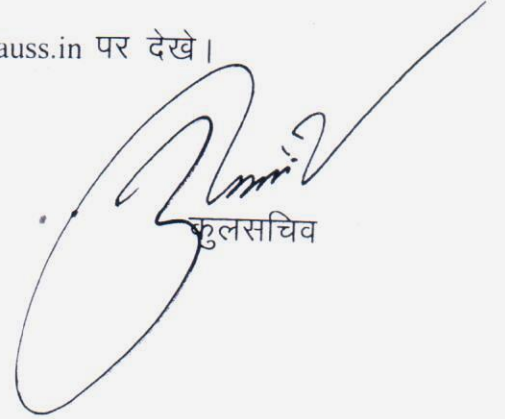 auss.in पर देखे।
कुलसचिव